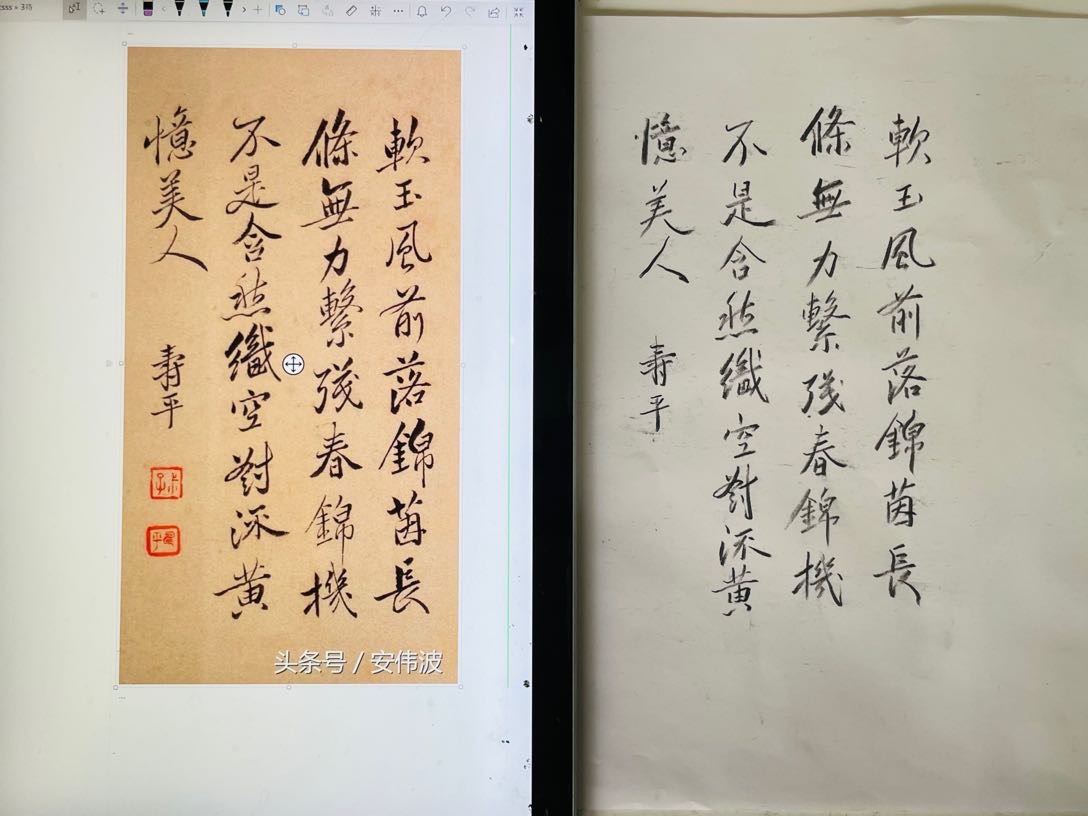 軟玉風前落錦茵長
條無力繫殘春錦機
不是含愁織空對流黃
憶美人 壽平
头条号 / 安伟波
軟玉風前落錦茵長
條無力繫殘春錦機
不是含愁織空對流黃
憶美人 壽平